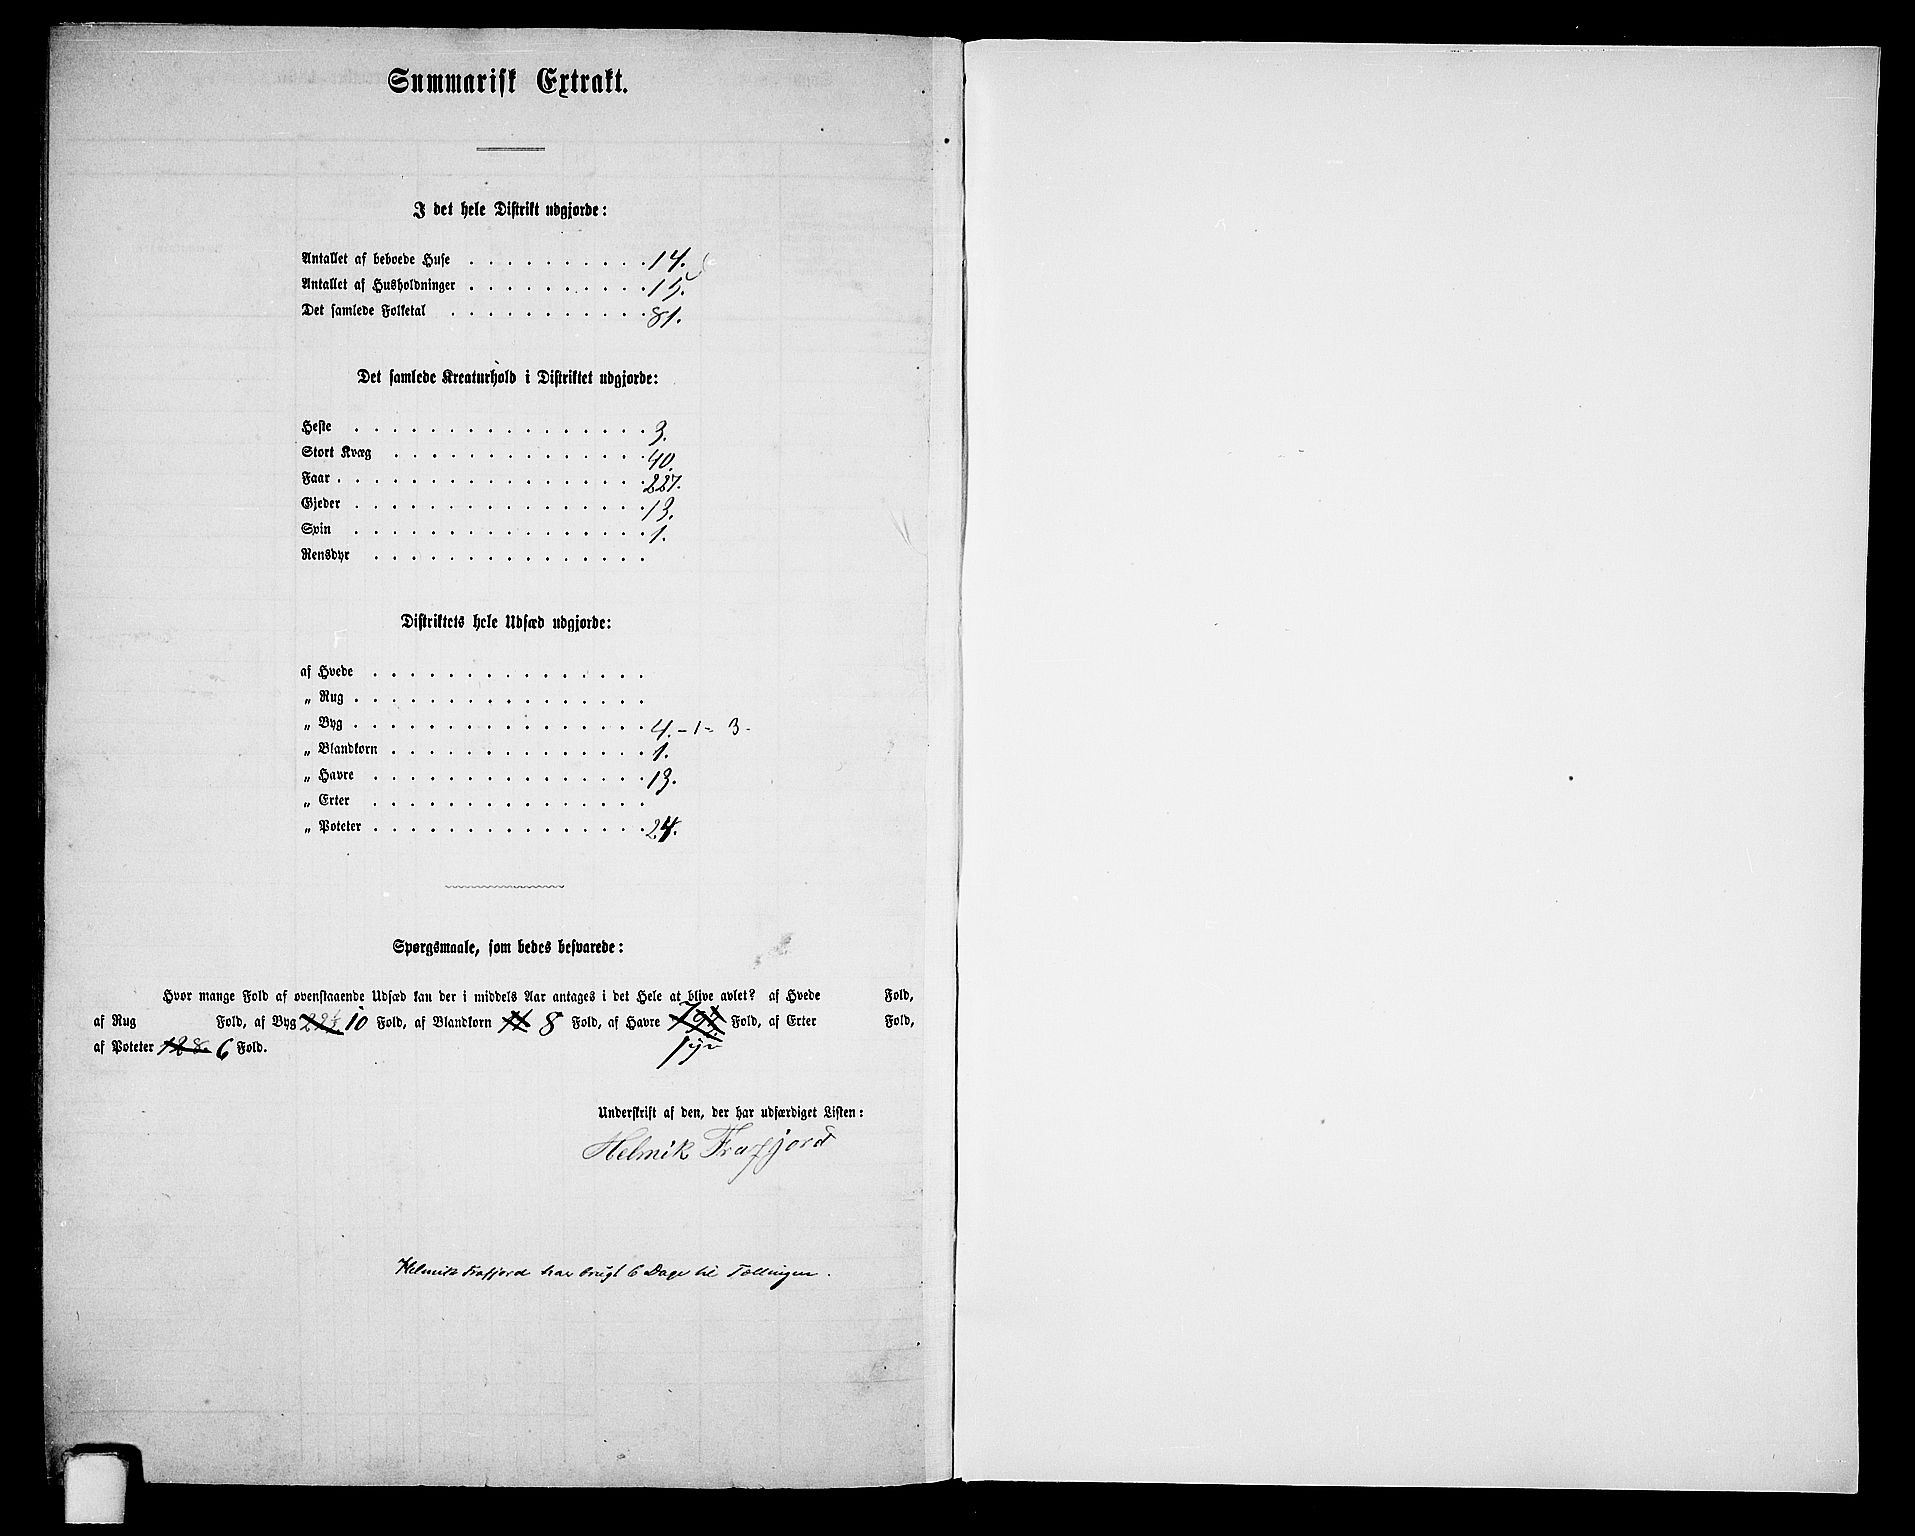 Summarisk Extrakt.
I det hele Distrikt udgjorde:
Antallet af beboede Huse . . . . . . . . . . 14.
Antallet af Husholdninger . . . . . . . . . . 15.
Det samlede Folketal . . . . . . . . . . . 81.
Det samlede Kreaturhold i Distriktet udgjorde:
Heste . . . . . . . . . . . . . . . . 3.
Stort Kvæg . . . . . . . . . . . . . . 40.
Faar . . . . . . . . . . . . . . . . . 227.
Gjeder . . . . . . . . . . . . . . . . 13.
Svin . . . . . . . . . . . . . . . . 1.
Rensdyr . . . . . . . . . . . . . . .
Distriktets hele Udsæd udgjorde:
af Hvede . . . . . . . . . . . . . . .
„ Rug . . . . . . . . . . . . . . . .
„ Byg . . . . . . . . . . . . . . . . 4. - 1 - 3.
„ Blandkorn . . . . . . . . . . . . . . 1.
„ Havre . . . . . . . . . . . . . . . 13.
„ Erter . . . . . . . . . . . . . . .
„ Poteter . . . . . . . . . . . . . . . 24.
Spørgsmaale, som bedes besvarede:
Hvor mange Fold af ovenstaaende Udsæd kan der i middels Aar antages i det Hele at blive avlet? af Hvede Fold,
af Rug Fold, af Byg 22½ 10 Fold, af Blandkorn 8 Fold, af Havre Fold, af Erter Fold,
af Poteter 128. 6 Fold.
Underskrift af den, der har udfærdiget Listen:
Helmik Frafjord
Helmik Frafjord har brugt 6 Dage til Tællingen.